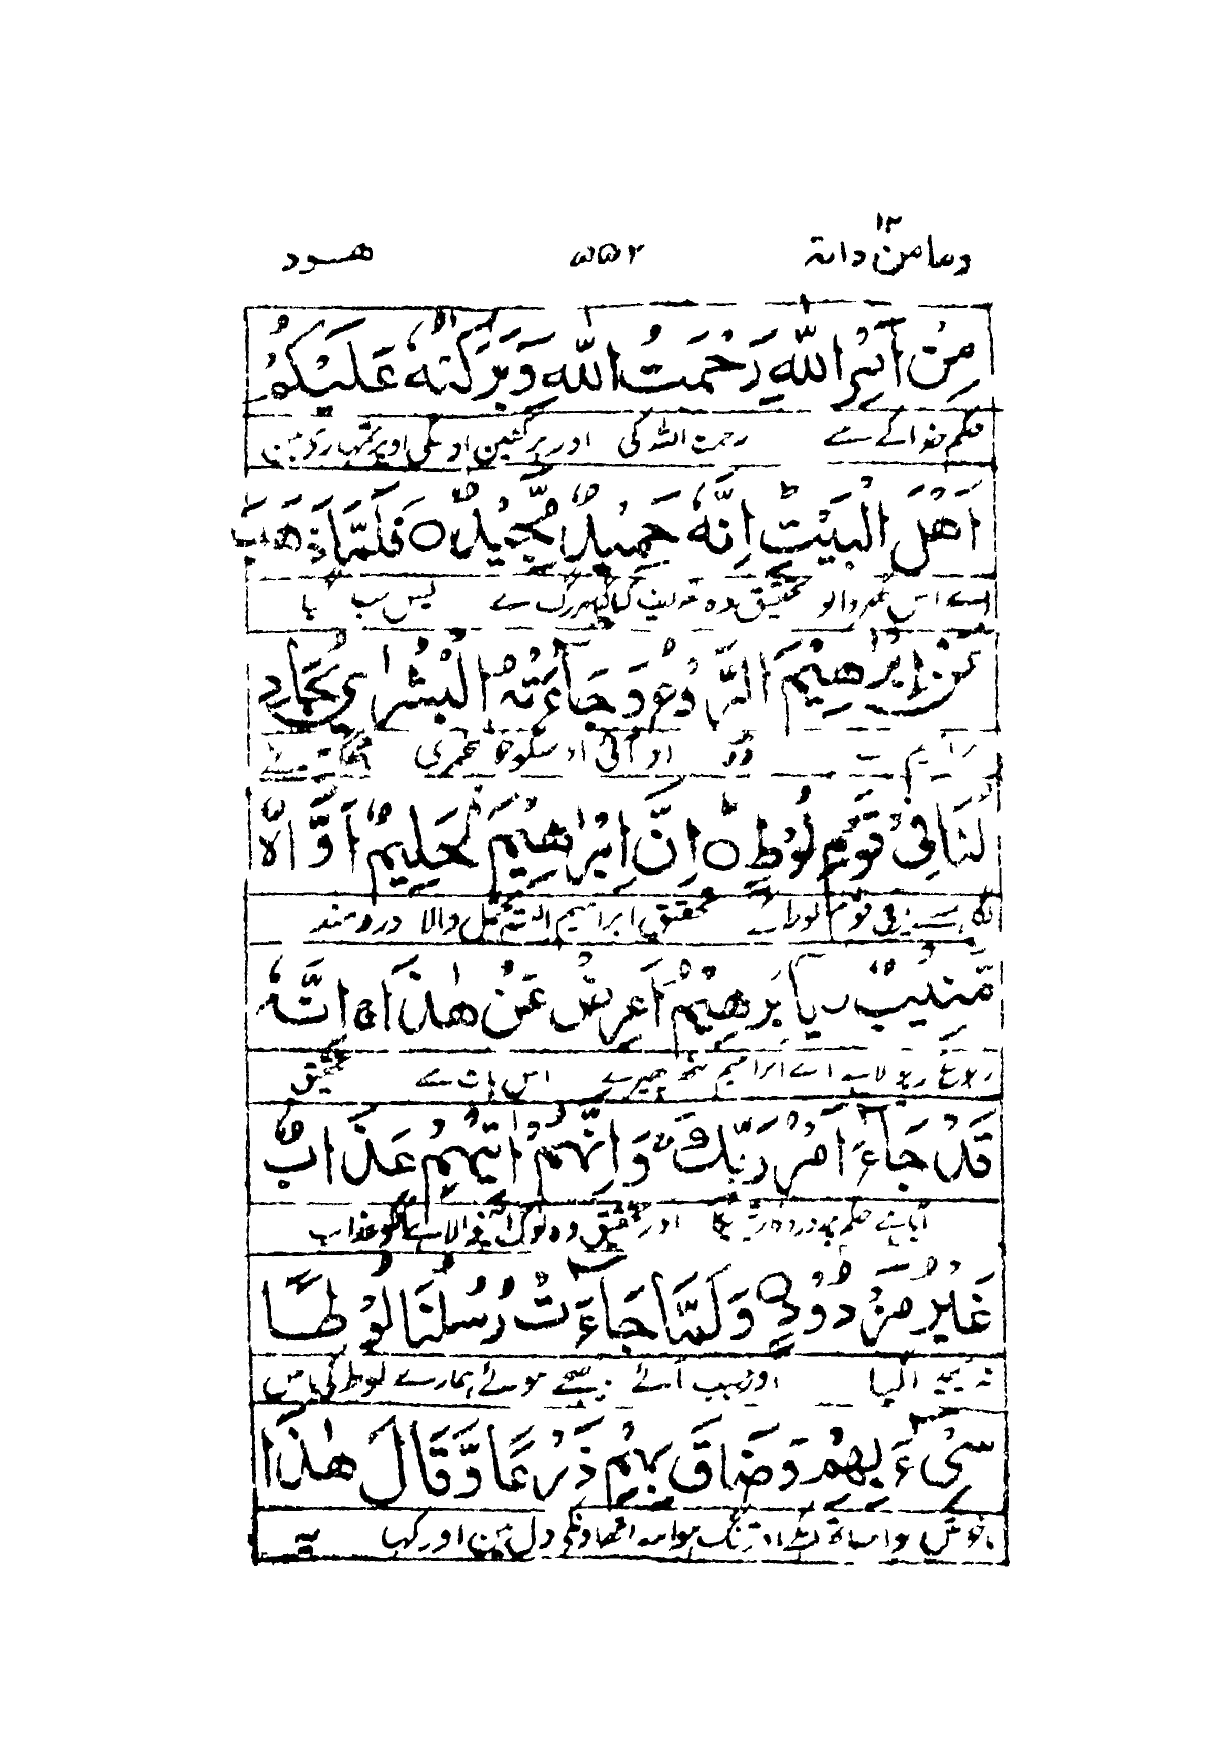 ۱۲
وما من دابة ۵۵۲ هود
مِنْ اَمْرِ اللّٰهِ رَحْمَتُ اللّٰهِ وَبَرَكٰتُهٗ عَلَيْكُمْ
حکم خدا کے سے رحمت اللہ کی اور برکتین اونکی اوپر تمہاری ہین
اَهْلَ الْبَيْتِ ؕ اِنَّهٗ حَمِيْدٌ مَّجِيْدٌ ۝ فَلَمَّا ذَهَبَ
اے اس گھر والو تحقیق وہ تعریف کیا بزرگ ہے پس جب گیا
عَنْ اِبْرٰهِيْمَ الرَّوْعُ وَجَآءَتْهُ الْبُشْرٰى يُجَادِ
ابراہیم سے ڈر اور آئی اوسکو خوشخبری
لُنَا فِيْ قَوْمِ لُوْطٍ ؕ۝ اِنَّ اِبْرٰهِيْمَ لَحَلِيْمٌ اَوَّاهٌ
بیچ قوم لوط کے تحقیق ابراہیم البتہ تحمل والا دردمند
مُّنِيْبٌ يٰۤاِبْرٰهِيْمُ اَعْرِضْ عَنْ هٰذَا ۚ اِنَّهٗ
رجوع لانے والا ہے اے ابراہیم منھ پھیرے اس بات سے تحقیق
قَدْ جَآءَ اَمْرُ رَبِّكَ ۚ وَاِنَّهُمْ اٰتِيْهِمْ عَذَابٌ
آیا ہے حکم پروردگار تیرے کا اور تحقیق وہ لوگ آنے والا ہے انکو عذاب
غَيْرُ مَرْدُوْدٍ ۝ وَلَمَّا جَآءَتْ رُسُلُنَا لُوْطًا
نہ پھیرا گیا اور جب آئے بھیجے ہوئے ہمارے لوط کی پاس
سِيْٓءَ بِهِمْ وَضَاقَ بِهِمْ ذَرْعًا وَّقَالَ هٰذَا
ناخوش ہوا ساتھ انکے اور تنگ ہوا ساتھ اونکی دل مین اور کہا یہ